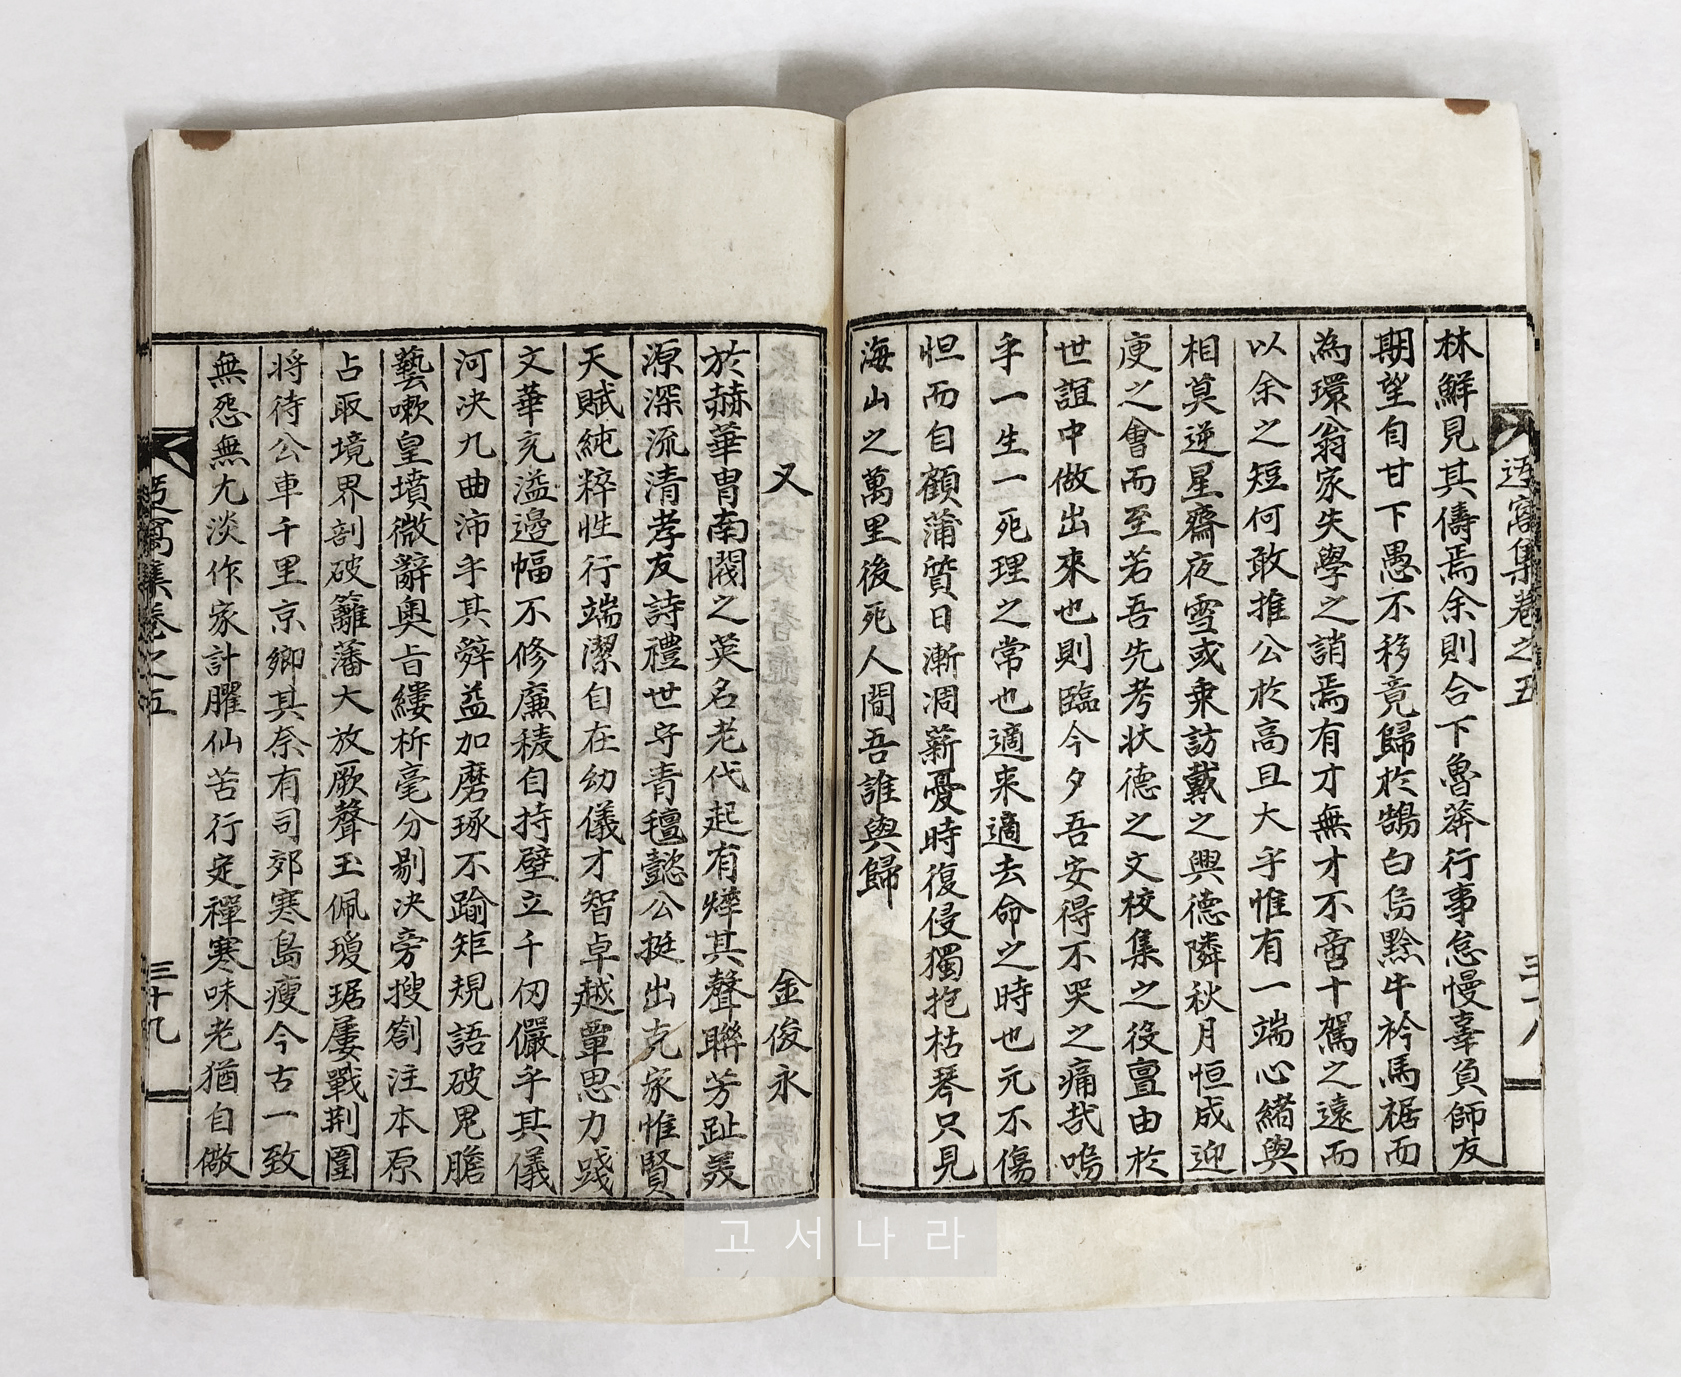 林鮮見其儔焉余則合下魯莽行事怠慢辜負師友
期望自甘下愚不移竟歸於鵠白烏黔牛衿馬裾而
為環翁家失學之誚焉有才無才不啻十駕之遠而
以余之短何敢推公於高且大乎惟有一端心緒與
相莫逆星齋夜雪或乘訪戴之興德隣秋月恒成迎
庚之會而至若吾先考狀德之文校集之役亶由於
世誼中做出來也則臨今夕吾安得不哭之痛哉嗚
乎一生一死理之常也適來適去命之時也元不傷
怛而自顧蒲質日漸凋薪憂時復侵獨抱枯琴只見
海山之萬里後死人間吾誰與歸
窩集卷之五
三十八
又 金俊永
於赫華胄南閥之英名老代起有燁其聲聯芳趾美
源深流清孝友詩禮世守青氊懿公挺出克家惟賢
天賦純粹性行端潔自在幼儀才智卓越覃思力踐
文華充溢邊幅不修廉稜自持壁立千仞儼乎其儀
河决九曲沛乎其辭益加磨琢不踰矩規語破鬼膽
藝嗽皇墳微辭奧旨縷析毫分剔决旁搜劄注本原
占取境界剖破籬藩大放厥聲玉佩瓊琚屢戰荆圍
將待公車千里京鄉其奈有司郊寒島瘦今古一致
無怨無尤淡作家計臞仙苦行定禪寒味老猶自儆
窩集卷之五
三十九
고서나라